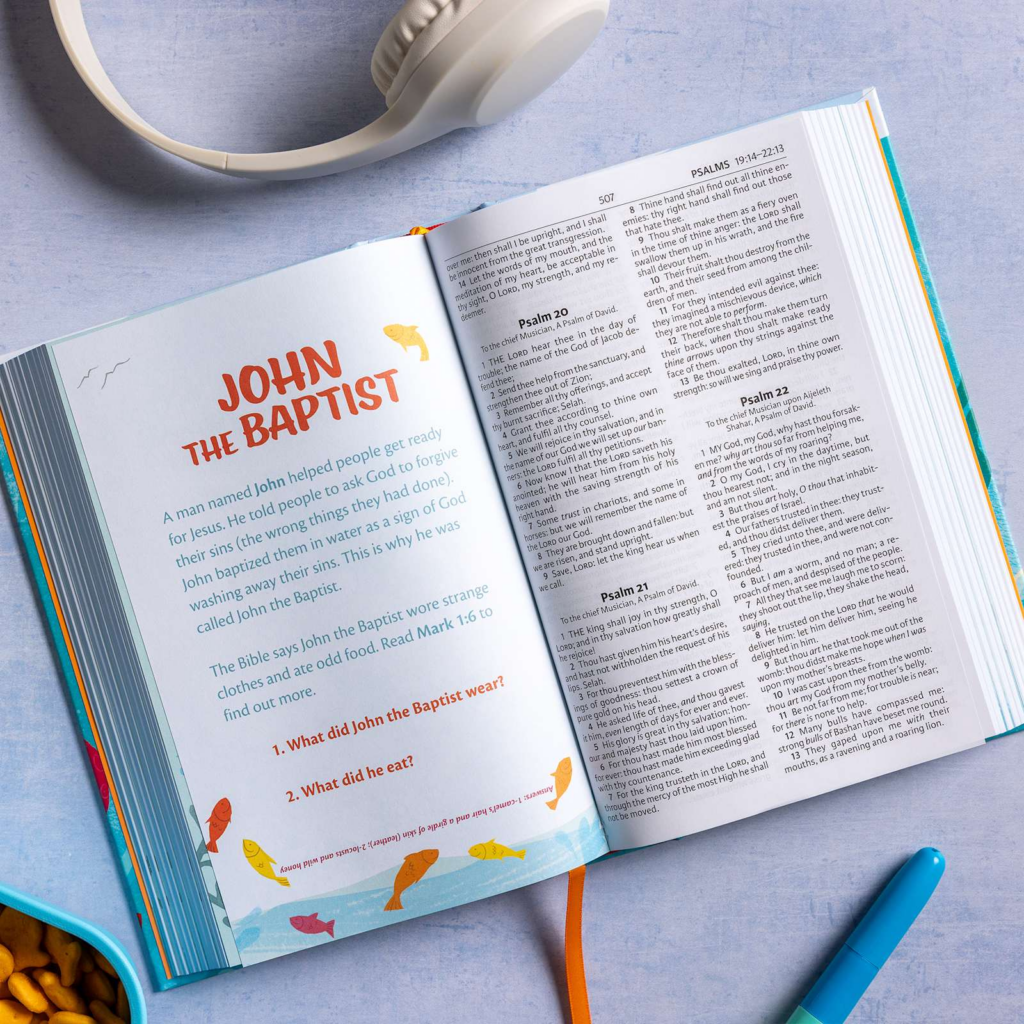 JOHN
THE BAPTIST
A man named John helped people get ready
for Jesus. He told people to ask God to forgive
their sins (the wrong things they had done).
John baptized them in water as a sign of God
washing away their sins. This is why he was
called John the Baptist.
The Bible says John the Baptist wore strange
clothes and ate odd food. Read Mark 1:6 to
find out more.
1. What did John the Baptist wear?
2. What did he eat?
Answers: 1-camel's hair and a girdle of skin (leather); 2-locusts and wild honey
507
PSALMS 19:14–22:13
over me: then shall I be upright, and I shall
be innocent from the great transgression.
14 Let the words of my mouth, and the
meditation of my heart, be acceptable in
thy sight, O LORD, my strength, and my re-
deemer.
Psalm 20
To the chief Musician, A Psalm of David.
1 THE LORD hear thee in the day of
trouble; the name of the God of Jacob de-
fend thee;
2 Send thee help from the sanctuary, and
strengthen thee out of Zion;
3 Remember all thy offerings, and accept
thy burnt sacrifice; Selah.
4 Grant thee according to thine own
heart, and fulfil all thy counsel.
5 We will rejoice in thy salvation, and in
the name of our God we will set up our ban-
ners: the LORD fulfil all thy petitions.
6 Now know I that the LORD saveth his
anointed; he will hear him from his holy
heaven with the saving strength of his
right hand.
7 Some trust in chariots, and some in
horses: but we will remember the name of
the LORD our God.
8 They are brought down and fallen: but
we are risen, and stand upright.
9 Save, LORD: let the king hear us when
we call.
Psalm 21
To the chief Musician, A Psalm of David.
1 THE king shall joy in thy strength, O
LORD; and in thy salvation how greatly shall
he rejoice!
2 Thou hast given him his heart's desire,
and hast not withholden the request of his
lips. Selah.
3 For thou preventest him with the bless-
ings of goodness: thou settest a crown of
pure gold on his head.
4 He asked life of thee, and thou gavest
it him, even length of days for ever and ever.
5 His glory is great in thy salvation: hon-
our and majesty hast thou laid upon him.
6 For thou hast made him most blessed
for ever: thou hast made him exceeding glad
with thy countenance.
7 For the king trusteth in the LORD, and
through the mercy of the most High he shall
not be moved.
8 Thine hand shall find out all thine en-
emies: thy right hand shall find out those
that hate thee.
9 Thou shalt make them as a fiery oven
in the time of thine anger: the LORD shall
swallow them up in his wrath, and the fire
shall devour them.
10 Their fruit shalt thou destroy from the
earth, and their seed from among the chil-
dren of men.
11 For they intended evil against thee:
they imagined a mischievous device, which
they are not able to perform.
12 Therefore shalt thou make them turn
their back, when thou shalt make ready
thine arrows upon thy strings against the
face of them.
13 Be thou exalted, LORD, in thine own
strength: so will we sing and praise thy power.
Psalm 22
To the chief Musician upon Aijeleth
Shahar, A Psalm of David.
1 My God, my God, why hast thou forsak-
en me? why art thou so far from helping me,
and from the words of my roaring?
2 O my God, I cry in the daytime, but
thou hearest not; and in the night season,
and am not silent.
3 But thou art holy, O thou that inhabit-
est the praises of Israel.
4 Our fathers trusted in thee: they trust-
ed, and thou didst deliver them.
5 They cried unto thee, and were deliv-
ered: they trusted in thee, and were not con-
founded.
6 But I am a worm, and no man; a re-
proach of men, and despised of the people.
7 All they that see me laugh me to scorn:
they shoot out the lip, they shake the head,
saying,
8 He trusted on the LORD that he would
deliver him: let him deliver him, seeing he
delighted in him.
9 But thou art he that took me out of the
womb: thou didst make me hope when I was
upon my mother's breasts.
10 I was cast upon thee from the womb:
thou art my God from my mother's belly.
11 Be not far from me; for trouble is near;
for there is none to help.
12 Many bulls have compassed me:
strong bulls of Bashan have beset me round.
13 They gaped upon me with their
mouths, as a ravening and a roaring lion.